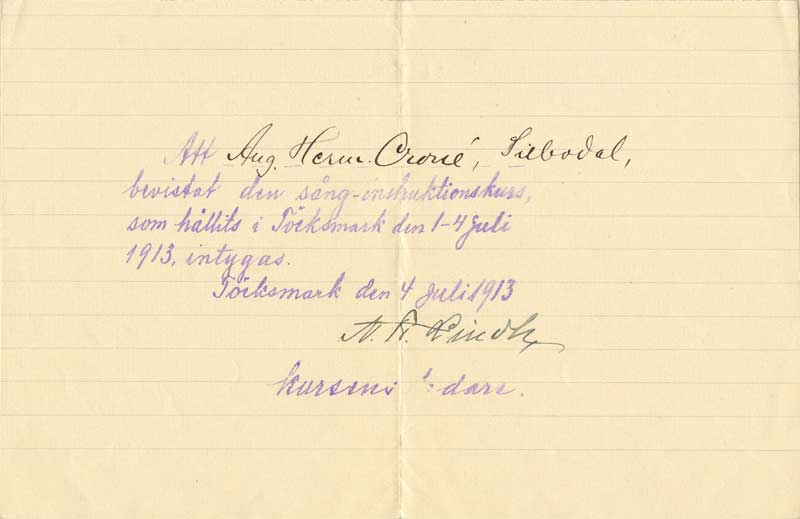 Att Aug. Herm. Croné, Silbodal,
bevistat den sång-instruktionskurs,
som hållits i Töcksmark den 1-4 Juli
1913, intygas.
Töcksmark den 4 Juli 1913
A. F. Lindh
kursens l:dare.